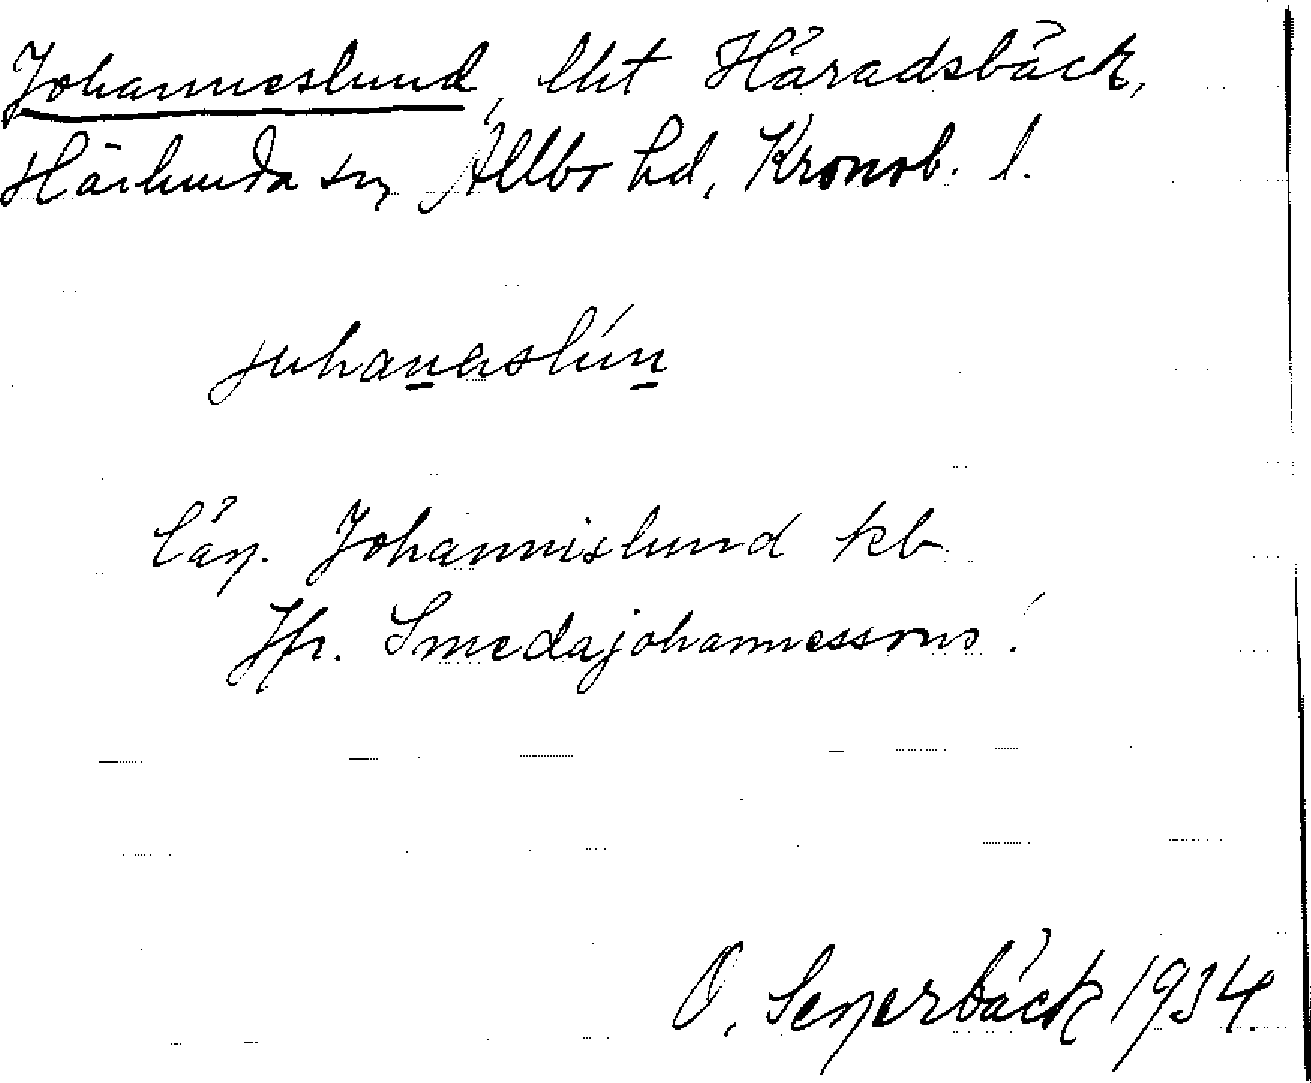 Johanneslund, lht Häradsbäck,
Härlunda sn, Allbo hd, Kronob. l.
juhanaslún
Johannislund kb
Jfr. Smedajohannessons!
O. 1934.